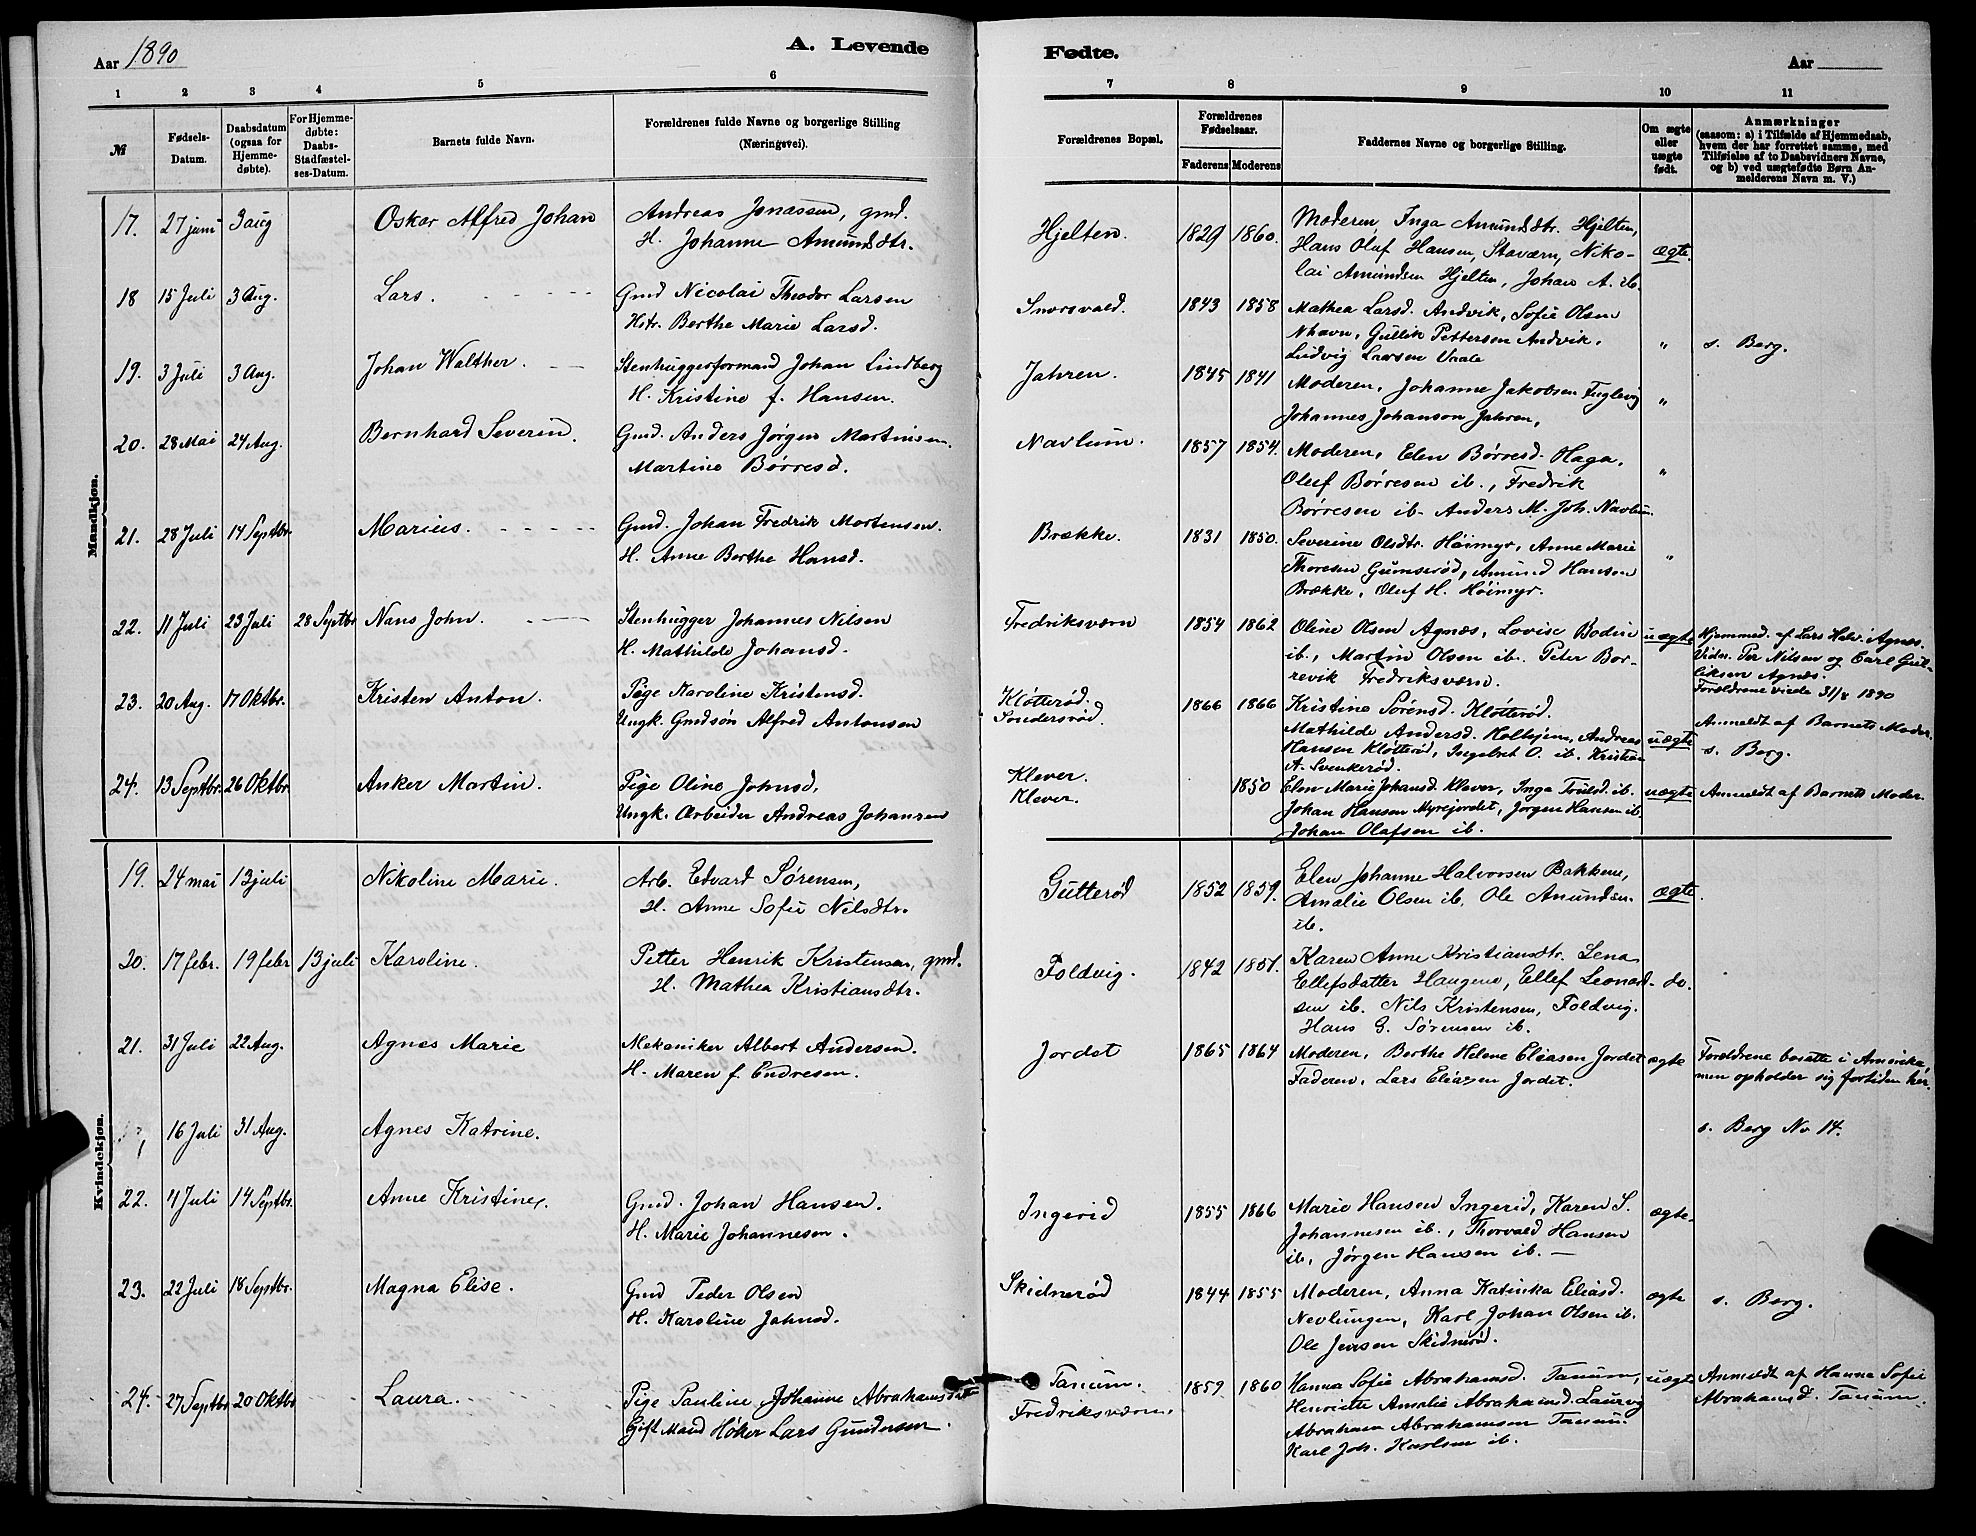 Aar 1890
A. Levende
Fødte.
Aar
1 2 3 4 5 6 7 8 9 10 11
№
Fødsels-
Datum.
Daabsdatum
(ogsaa for
Hjemme-
døbte).
For Hjemme-
døbte:
Daabs-
Stadfæstel-
ses-Datum.
Barnets fulde Navn.
Forældrenes fulde Navne og borgerlige Stilling
(Næringsvei).
Forældrenes Bopæl.
Forældrenes
Fødselsaar.
Faderens Moderens
Faddernes Navne og borgerlige Stilling.
Om ægte
eller
uægte
født.
Anmærkninger
(saasom: a) i Tilfælde af Hjemmedaab,
hvem der har forrettet samme, med
Tilføielse af to Daabsvidners Navne,
og b) ved uægtefødte Børn An-
melderens Navn m. V.)
Mandkjøn.
17. 27 juni 3 aug Oskar Alfred Johan
Andreas Jonassen, gmd.
H. Johanne Amundsdtr.
Hjelten. 1829 1860.
Moderen, Inga Amundsdtr. Hjelten,
Hans Olaf Hansen, Staværn, Niko-
lai Amundsen Hjelten, Johan A. ib.
ægte.
18 15 Juli 3 Aug. Lars.
Gmd Nicolai Theodor Larsen
Hstr. Berthe Marie Larsd.
Snorsvald. 1843 1858
Mathea Larsd. Andvik, Sofie Olsen
Nhavn, Gullik Pettersen Andvik.
Ludvig Larsen Vaale
" s. Berg.
19. 3 Juli 3 Aug. Johan Walther.
Stenhuggerformand Johan Lindberg
H. Kristine f. Hansen.
Jahren. 1845 1841
Moderen, Johanne Jakobsen Fuglevig
Johannes Johanson Jahren,
"
20. 28 Mai 24 Aug. Bernhard Severin.
Gmd. Anders Jørgen Martinsen.
Martine Børresd.
Navlum. 1857 1854.
Moderen, Elen Børresd. Haga,
Oluf Børresen ib., Fredrik
Børresen ib. Anders M. Joh. Navlum.
"
21. 28 Juli 14 Septbr. Marius.
Gmd. Johan Fredrik Mortensen.
H. Anne Berthe Hansd.
Brække. 1831 1850.
Severine Olsdtr. Høimyr, Anne Marie
Thoresen Gumserød, Amund Hansen
Brække, Oluf H. Høimyr.
"
22. 11 Juli 23 Juli 28 Septbr Nans John.
Stenhugger Johannes Nilsen
H. Mathilde Johansd.
Fredriksværn 1854 1862
Oline Olsen Agnæs, Lovise Bodin
ib., Martin Olsen ib. Peter Bor-
revik Fredriksværn.
uægte
Hjemmed. af Lars Halv. Agnæs.
Vidn. Per Nilsen og Carl Gul-
liksen Agnæs.
Forældrene viede 31/8 1890
23. 20 Aug. 17 Oktbr. Kristen Anton.
Pige Karoline Kristensd.
Ungk. Gmdsøn Alfred Antonsen
Kløtterød.
Søndersrød.
1866 1866
Kristine Sørensd. Kløtterød.
Mathilde Andersd. Holhjem, Andreas
Hansen Kløtterød, Ingebret O. ib. Kristian
A. Svenkerød.
uægte
Anmeldt af Barnets Moder.
s. Berg.
24. 13 Septbr. 26 Oktbr Anker Martin.
Pige Oline Johnsd,
Ungk. Arbeider Andreas Johansen
Klever.
Klever.
1850
Elen Marie Johansd. Klever, Inga Trulsd. ib.
Johan Hansen Myrejordet, Jørgen Hansen ib.
Johan Olafsen ib.
uægte Anmeldt af Barnets Moder.
Kvindekjøn.
19. 24 mai 13 juli Nikoline Marie.
Arb. Edvard Sørensen,
H. Anne Sofie Nilsdtr.
Gutterød 1852 1859.
Elen Johanne Halvorsen Bakkene,
Amalie Olsen ib. Ole Amundsen
ib.
ægte.
20. 17 febr. 19 febr 13 juli Karoline.
Petter Henrik Kristensen, gmd.
H. Mathea Kristiansdtr.
Foldvig. 1842 1851.
Karen Anne Kristiansdtr. Lena
Ellefsdatter Haugene, Ellef Leonard-
sen ib. Nils Kristensen, Foldvig.
Hans G. Sørensen ib.
do.
21. 31 Juli 22 Aug. Agnes Marie
Mekaniker Albert Andersen.
H. Maren f. Endresen.
Jordet 1865 1864
Moderen, Berthe Helene Eliasen Jordet
Faderen, Lars Eliasen Jordet.
ægte
Forældrene bosatte i Amerika,
men opholder sig fortiden her.
16 Juli 31 Aug. Agnes Katrine.
s. Berg No 14.
22. 4 Juli 14 Septbr. Anne Kristine.
Gmd. Johan Hansen.
H. Marie Johannesen.
Ingerid 1855 1866
Marie Hansen Ingerid, Karen S.
Johannesen ib., Thorvald Hansen
ib, Jørgen Hansen ib.
ægte
23. 22 Juli 18 Septbr. Magna Elise.
Gmd Peder Olsen
H. Karoline Johnsd.
Skidnerød 1844 1855
Moderen, Anna Katinka Eliasd.
Nevlungen, Karl Johan Olsen ib.
Ole Jensen Skidnerød.
ægte s. Berg.
24. 27 Septbr 20 Oktbr Laura.
Pige Pauline Johanne Abrahamsdatt
Gift Mand Høker Lars Gundersen.
Tanum.
Fredriksværn.
1859 1860
Hanna Sofie Abrahamsd. Tanum,
Henriette Amalie Abrahamsd. Laurvig
Abraham Abrahamsen Tanum.
Karl Joh. Karlsen ib.
uægte
Anmeldt af Hanna Sofie
Abrahamsd. Tanum.